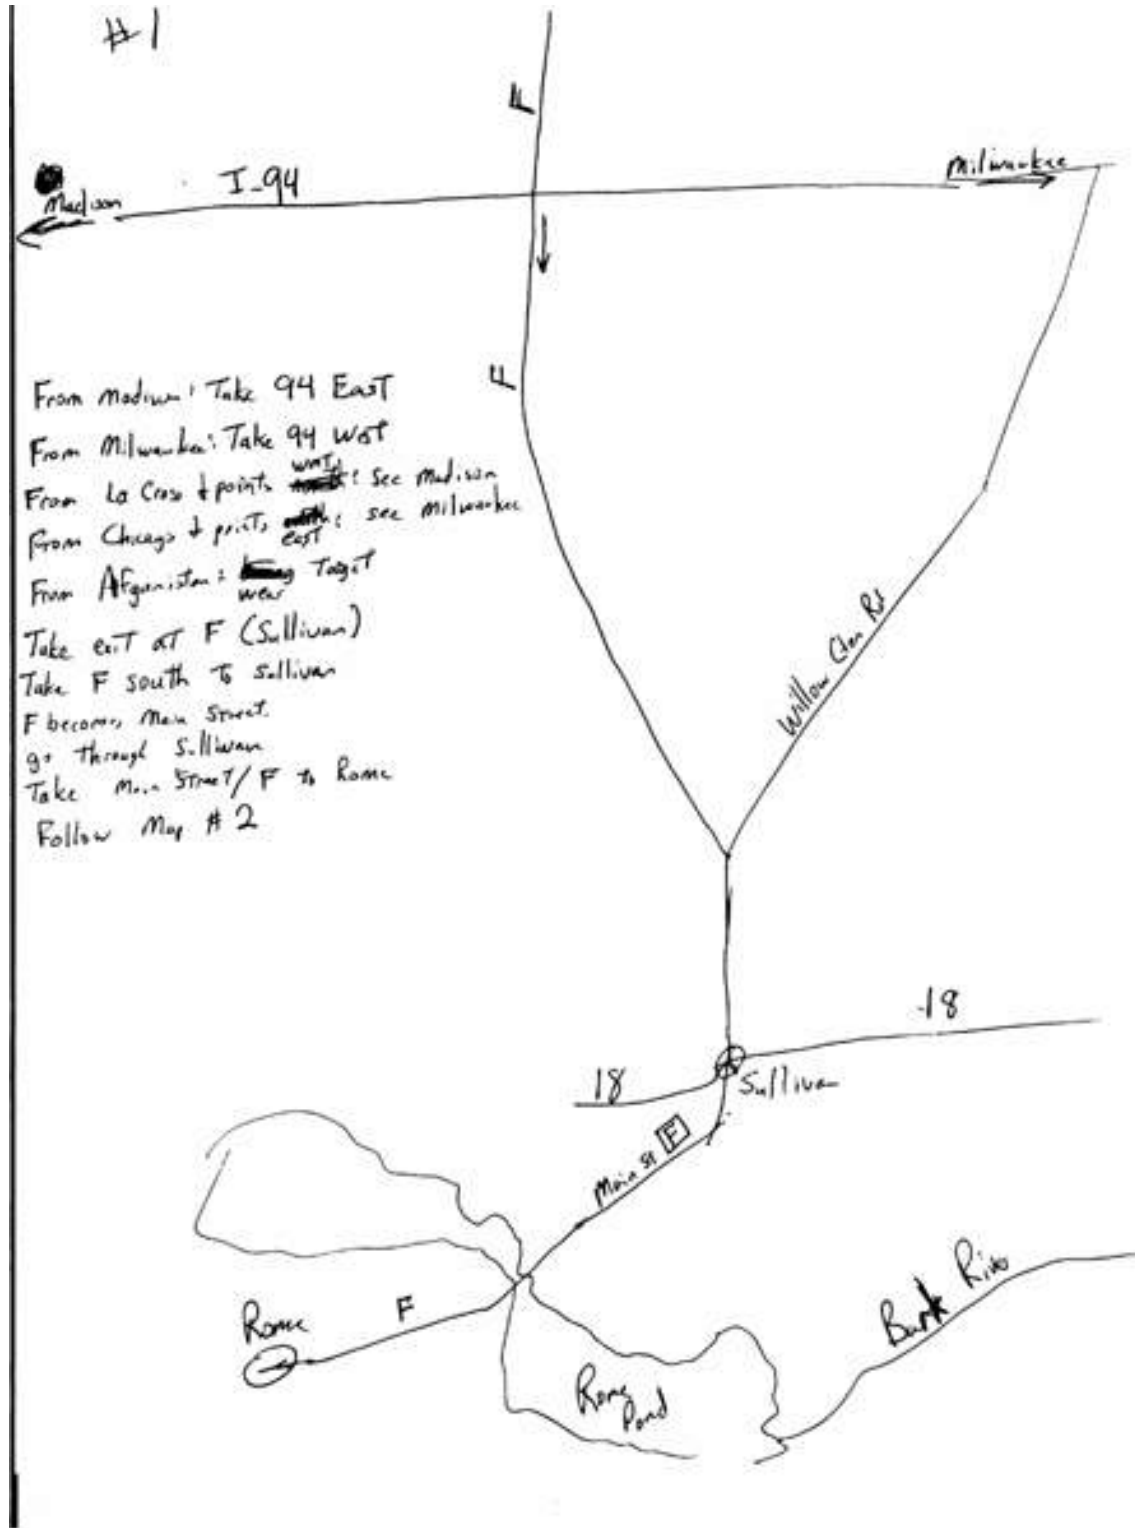 #1
F
Milwaukee
Madison
I-94
F
From Madison: Take 94 East
From Milwaukee: Take 94 West
From La Cross & points west: see Madison
From Chicago & points east: see Milwaukee
From Afganistan: wear Target
Take exit at F (Sullivan)
Take F south to Sullivan
F becomes Main Street.
go through Sullivan
Take Main Street/F to Rome
Follow Map #2
Willow Glen Rd
18
18
Sullivan
Main St F
Bark River
Rome
F
Rome
Pond